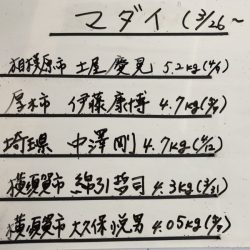 マダイ (3/26~
相模原市 土屋慶見 5.2kg(4/9)
厚木市 伊藤康博 4.7kg(9/9)
埼玉県 中澤剛 4.7kg(6/12)
横須賀市 綿引哲司 4.3kg(3/31)
横須賀市 大久保悦男 4.05kg(9/9)